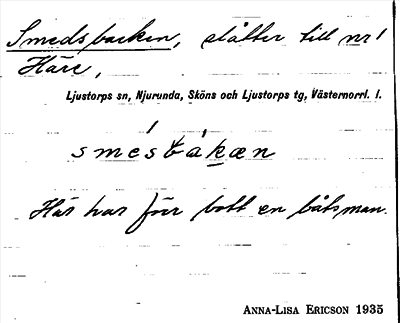 Smedsbacken, slåtter till nr 1
Häre,
Ljustorps sn, Njurunda, Sköns och Ljustorps tg, Västernorrl. l.
smésbákæn
Här har förr bott en båtsman.
ANNA-LISA ERICSON 1935